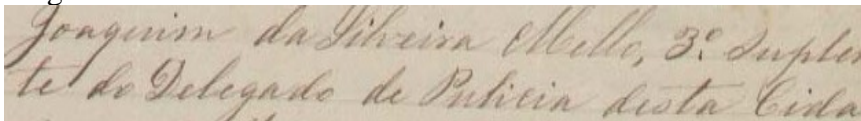 Joaquim da Silveira Mello, 3º Suplen
te do Delegado de Policia desta Cida